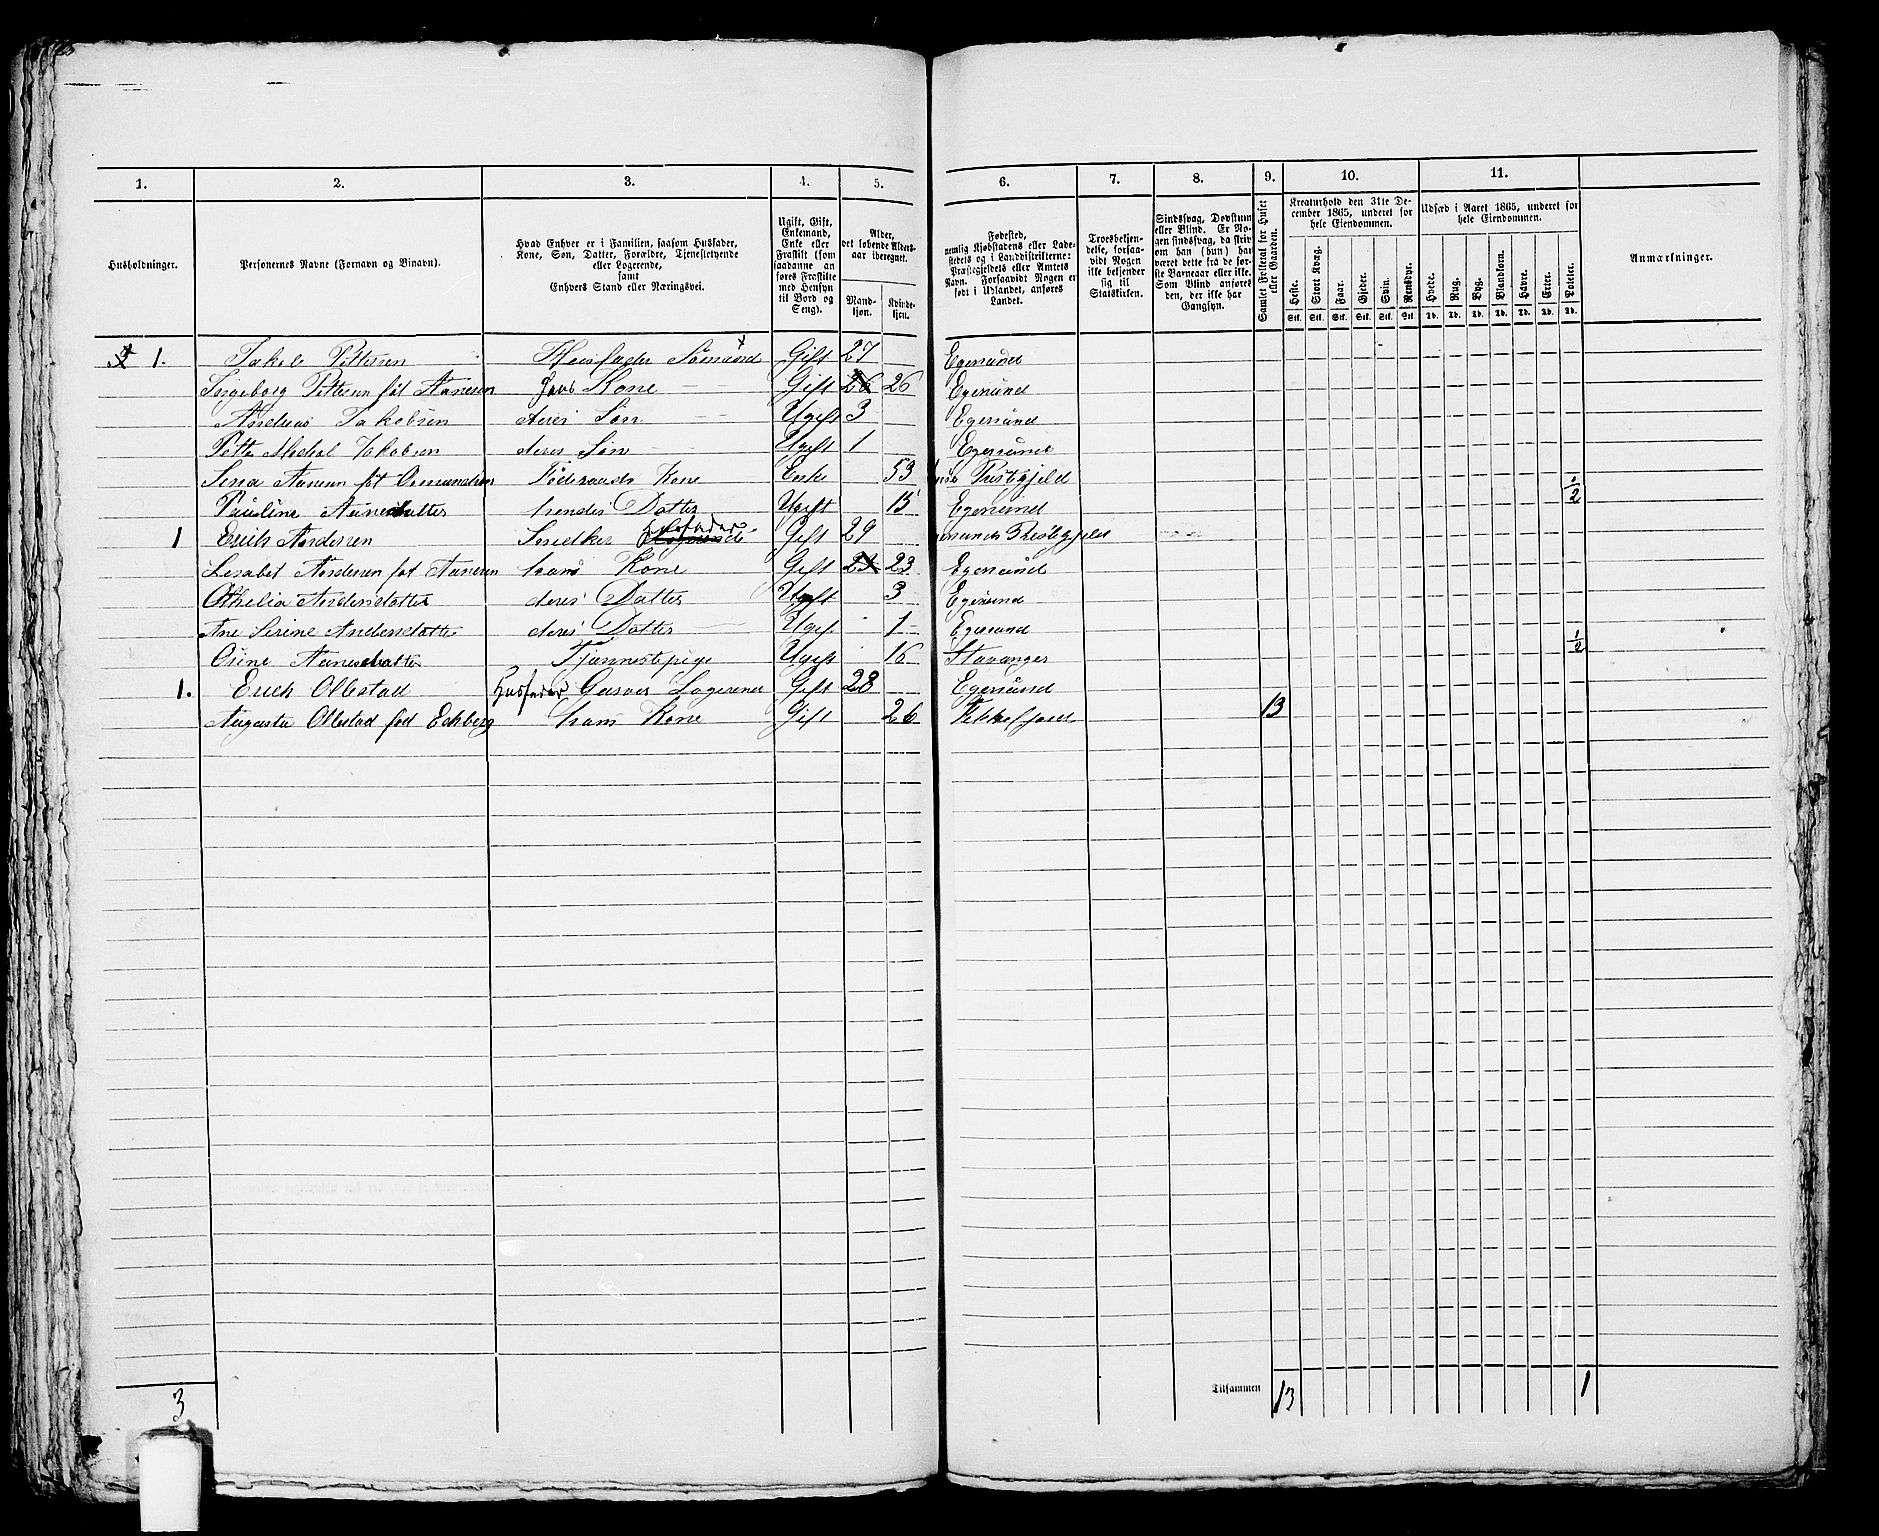 1. 2. 3. 4. 5. 6. 7. 8. 9. 10. 11.
Husholdninger.
Personernes Navne (Fornavn og Binavn).
Hvad Enhver er i Familien, saasom Husfader,
Kone, Søn, Datter, Forældre, Tjenestetyende
eller Logerende,
samt
Enhvers Stand eller Næringsvei.
Ugift, Gift,
Enkemand,
Enke eller
Fraskilt (som
saadanne an-
føres Fraskilte
med Hensyn
til Bord og
Seng).
Alder,
det løbende Alders-
aar iberegnet.
Mand-
kjøn.
Kvinde-
kjøn.
Fødested,
nemlig Kjøbstadens eller Lade-
stedets og i Landdistrikterne:
Præstegjeldets eller Amtets
Navn. Forsaavidt Nogen er
født i Udlandet, anføres
Landet.
Troesbekjen-
delse, forsaa-
vidt Nogen
ikke bekjender
sig til
Statskirken.
Sindssvag, Døvstum
eller Blind. Er No-
gen sindssvag, da skriv
om han (hun) har
været dette fra de før-
ste Barneaar eller ikke.
Som Blind anføres
den, der ikke har
Gangsyn.
Samlet Folketal for Huset
eller Gaarden.
Kreaturhold den 31te De-
cember 1865, underet for
hele Eiendommen.
Heste. Stort Kvæg. Faar. Gjeder. Svin. Rensdyr.
Stk. Stk. Stk. Stk. Stk. Stk.
Udsæd i Aaret 1865, underet for
hele Eiendommen.
Hvede. Rug. Byg. Blandkorn. Havre. Erter. Poteter.
Td. Td. Td. Td. Td. Td. Td.
Anmærkninger.
1. Jakob Pettersen Huusfader Sømand Gift 27 Egersund
Ingeborg Pettersen født Aanesen Kone Gift 26 26 Egersund
Andreas Jakobsen deres Søn Ugift 3 Egersund
deres Søn Ugift 1 Egersund
Kone Enke 53
Pauline Aanesdatter hendes Datter Ugift 15 Egersund 1/2
1 Erich Andersen Snedker Husfader Gift 29
Lisabet Andersen føt Aanesen hans Kone Gift 23 23 Egersund
Othelia Andersdatter deres Datter Ugift 3 Egersund
Ane Serine Andersdatter deres Datter Ugif. 1 Egersund
Osine Aanesdatter Tjennestepige Ugift 16 Stavanger 1/2
1. Erich Ollestad Husfader Logerende Gift 28 Egersund
Augusta Ollestad fød Eckberg hans Kone Gift 26 Fekkefjord 13
3 Tilsammen 13 1